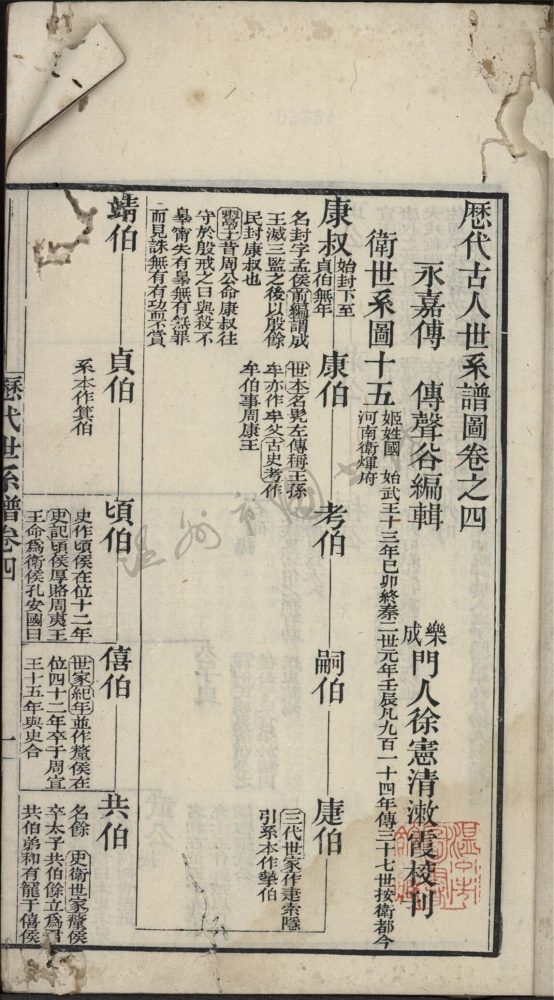 歷代古人世系譜圖卷之四
永嘉傅 傅聲谷編輯
樂成門人徐憲清漱霞校刊
衛世系圖十五
姬姓國 始武王十三年己卯終秦二世元年壬辰凡九百一十四年傳三十七世按衛都今
河南衛輝府
康叔
始封下至
貞伯無年
名封字孟侯前編謂成
王滅三監之後以殷餘
民封康叔也
鬻子昔周公命康叔往
守於殷戒之曰與殺不
辜寧失有辠無有無罪
而見誅無有有功而不賞
康伯
世本名髡左傳稱王孫
牟亦作牟父古史考作
牟伯事周康王
考伯
嗣伯
疌伯
三代世家作疌索隱
引系本作摯伯
靖伯
貞伯
系本作箕伯
頃伯
史作頃侯在位十二年
史記頃侯厚賂周夷王
王命為衛侯孔安國曰
僖伯
世家紀年並作釐侯在
位四十二年卒于周宣
王十五年與史合
共伯
名餘 史衛世家釐侯
卒太子共伯餘立為君
共伯弟和有寵于僖侯
歷代世系譜卷四
一